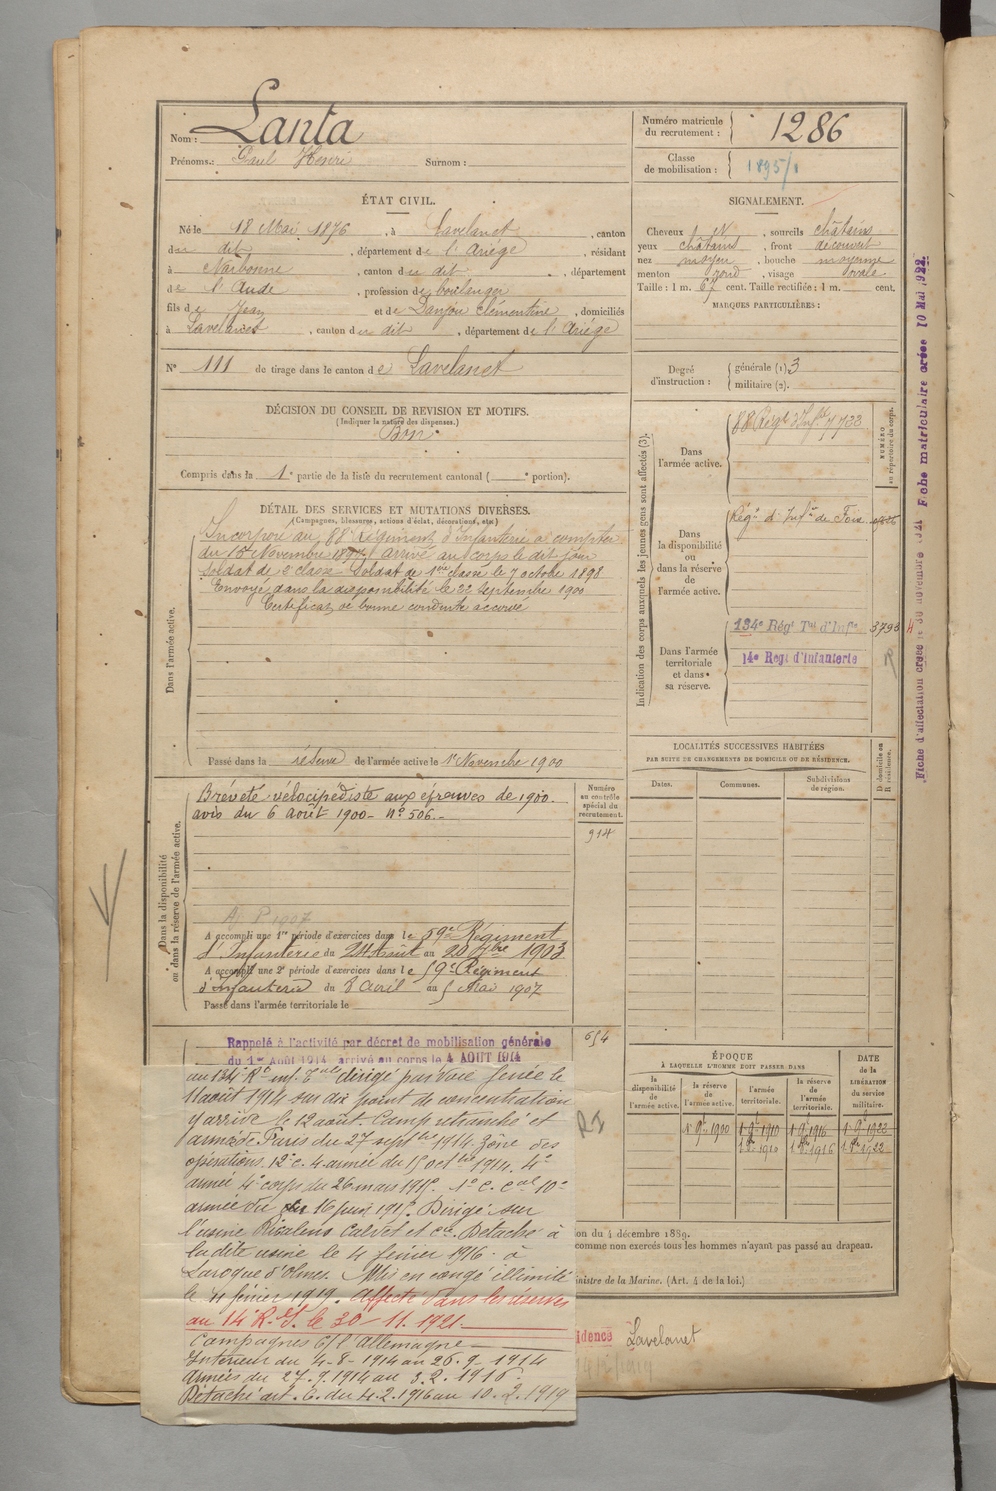 Nom : Lanta
Prénoms : Paul Henri Surnom :
Numéro matricule du recrutement : 1286
Classe de mobilisation : 1895/1
ÉTAT CIVIL.
Né le 18 Mai 1876, à Lavelanet, canton
du dit, département de l'Ariége, résidant
à Narbonne, canton du dit, département
de l'Aude, profession de boulanger
fils de Jean et de Danjou Clémentine, domiciliés
à Lavelanet, canton du dit, département de l'Ariége
SIGNALEMENT.
Cheveux N, sourcils châtains
yeux châtains, front découvert
nez moyen, bouche moyenne
menton rond, visage ovale
Taille : 1 m. 67 cent. Taille rectifiée : 1 m. cent.
MARQUES PARTICULIÈRES :
N° 111 de tirage dans le canton de Lavelanet
Degré d'instruction : générale (1). 3
militaire (2).
DÉCISION DU CONSEIL DE REVISION ET MOTIFS.
(Indiquer la nature des dispenses.)
Bon
Compris dans la 1e partie de la liste du recrutement cantonal ( e portion).
DÉTAIL DES SERVICES ET MUTATIONS DIVERSES.
(Campagnes, blessures, actions d'éclat, décorations, etc.)
Dans l'armée active.
Incorporé au 88e Régiment d'Infanterie à compter
du 16 Novembre 1897 arrivé au corps le dit jour
soldat de 2e classe Soldat de 1ère classe le 7 octobre 1898
Envoyé dans la disponibilité le 22 Septembre 1900
Certificat de bonne conduite accordé
Passé dans la réserve de l'armée active le 1er Novembre 1900
Indication des corps auxquels les jeunes gens sont affectés (3).
NUMÉRO au répertoire du corps.
Dans l'armée active.
88 Régt d'Infie 7733
Dans la disponibilité ou dans la réserve de l'armée active.
Régt d'Infie de Foix
Dans l'armée territoriale et dans sa réserve.
134e Régt Tal d'Infie 3793
14e Régt d'Infanterie
Fiche d'affectation créée le 30 novembre 1921 Fiche matriculaire créée 10 Mai 1922.
Dans la disponibilité ou dans la réserve de l'armée active.
Bréveté vélocipédiste aux épreuves de 1900.
avis du 6 août 1900 - N° 506.-
Numéro au contrôle spécial du recrutement.
914
1907
A accompli une 1re période d'exercices dans le 59e Régiment
d'Infanterie du 24 Août au 20 7bre 1903
A accompli une 2e période d'exercices dans le 59e Régiment
d'Infanterie du 8 avril au 5 Mai 1907
Passé dans l'armée territoriale le
654
LOCALITÉS SUCCESSIVES HABITÉES
PAR SUITE DE CHANGEMENTS DE DOMICILE OU DE RÉSIDENCE.
Dates. Communes. Subdivisions de région. D domicile ou R résidence.
Rappelé à l'activité par décret de mobilisation générale
du 1er Août 1914 arrivé au corps le 4 AOUT 1914
au 134e Rt inf. Tale dirigé par voie ferrée le
11 août 1914 sur dix point de concentration
y arrive le 12 août. Camp retranché et
armée de Paris du 27 septbre 1914. Zône des
opérations. 12e c. 4 armée du 15 octbre 1914. 4e
armée 4e corps du 26 mars 1915. 1er c. cal 10e
armée du 16 juin 1915. Dirigé sur
l'usine Ricalens Calvet et Cie. Détaché à
la dite usine le 4 février 1916 à
Laroque d'Olmes. Mis en congé illimité
le 4 février 1919. Affecté dans les réserves
au 14e R. I. le 30-11.1921.
Campagnes C/ l'Allemagne
Intérieur du 4-8-1914 au 26.9.1914
Armées du 27.9.1914 au 3.2.1916.
Détaché art. 6. du 4.2.1916 au 10.2.1919
RI
ÉPOQUE
À LAQUELLE L'HOMME DOIT PASSER DANS
la disponibilité de l'armée active. la réserve de l'armée active. l'armée territoriale. la réserve de l'armée territoriale.
DATE de la LIBÉRATION du service militaire.
1er 9bre 1900 1er 9bre 1910 1er 9bre 1916 1er 9bre 1923
1er 8bre 1910 1er 8bre 1916 1er 8bre 1922
ion du 4 décembre 1889.
comme non exercés tous les hommes n'ayant pas passé au drapeau.
inistre de la Marine. (Art. 4 de la loi.)
idence Lavelanet